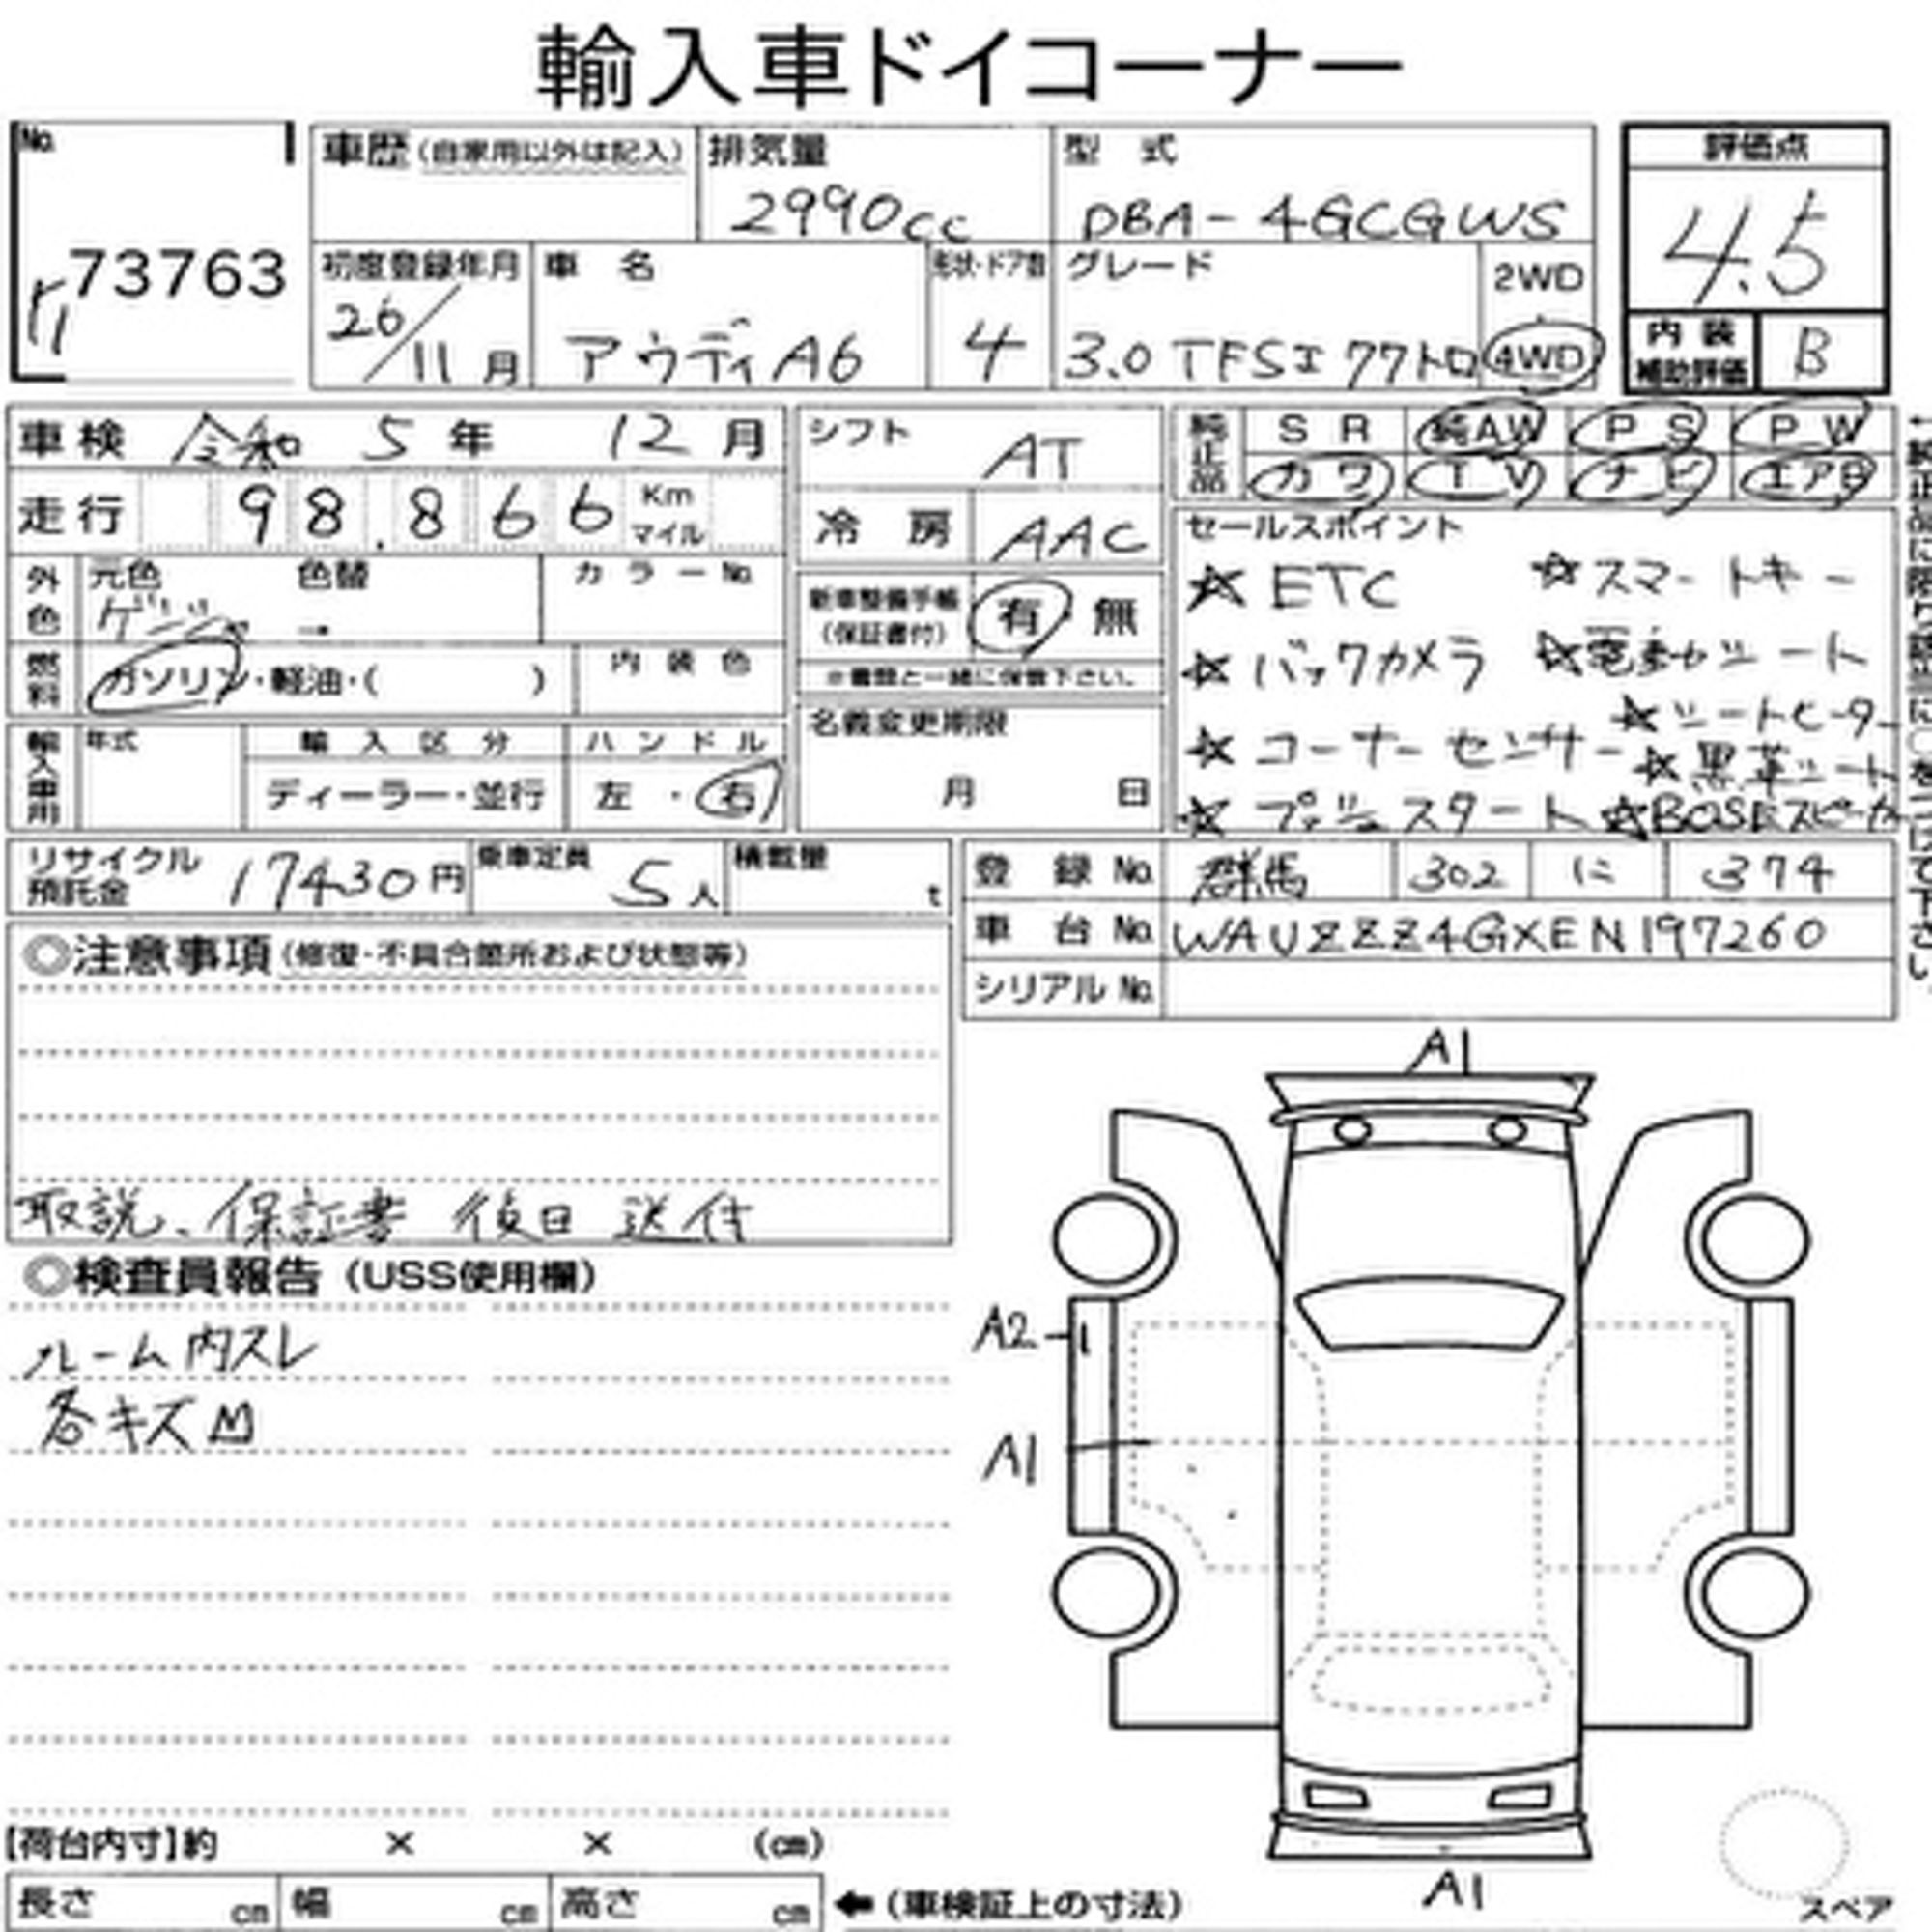 輸入車ドイコーナー
No.
73763
車歴(自家用以外は記入)
排気量
2990cc
型 式
DBA-4GCGWS
評価点
4.5
初度登録年月
26/11月
車 名
アウディA6
形状・ドア数
4
グレード
3.0 TFSI クワトロ
2WD
・
4WD
内装
補助評価
B
車検 令和 5年 12月
走行 98.866 Km マイル
外色
元色
色替
→
カラーNo.
燃料
ガソリン・軽油・( )
内装色
輸入車用
年式
輸入区分
ディーラー・並行
ハンドル
左・右
シフト
AT
冷房
AAC
新車整備手帳
(保証書付)
有・無
※書類と一緒に保管下さい。
名義変更期限
月 日
純正品
SR 純AW PS PW
カワ TV ナビ エアB
セールスポイント
☆ETC ☆スマートキー
☆バックカメラ ☆電動シート
☆シートヒーター
☆コーナーセンサー
☆黒革シート
☆プッシュスタート ☆BOSEスピーカー
リサイクル
預託金
17430円
乗車定員
5人
積載量
t
登録No. 群馬 302 に 374
車台No. WAUZZZ4GXEN197260
シリアルNo.
◎注意事項(修復・不具合箇所および状態等)
取説、保証書 後日 送付
◎検査員報告(USS使用欄)
ルーム内スレ
各キズ凹
A1
A2
A1
A1
スペア
【荷台内寸】約 × × (cm)
長さ cm
幅 cm
高さ cm
←(車検証上の寸法)